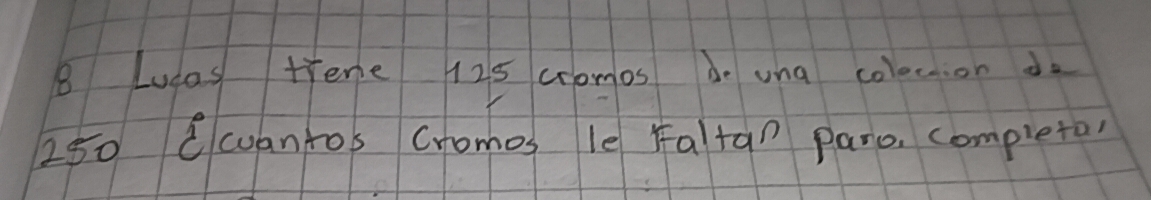 8 Lucas tiene 125 cromos de una coleccion de
250 ¿cuantos cromos le Faltan para completar